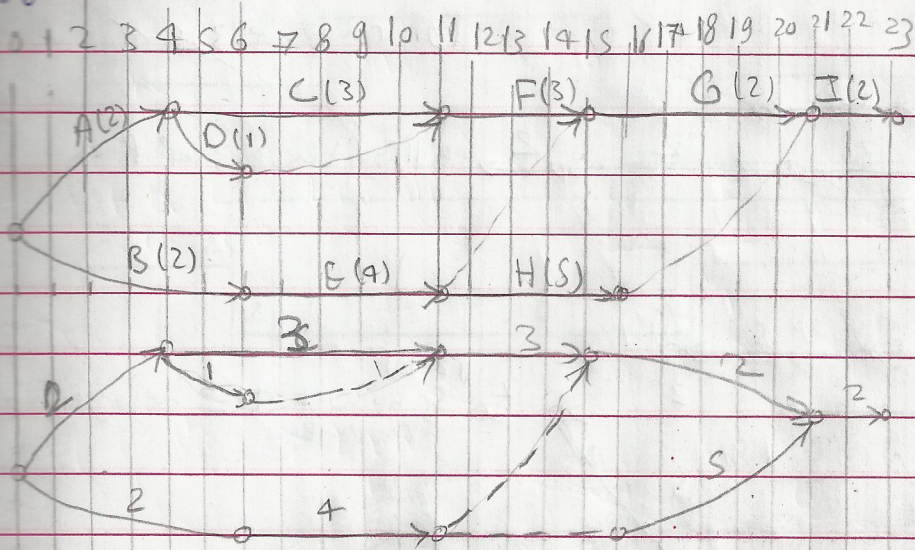 0 1 2 3 4 5 6 7 8 9 10 11 12 13 14 15 16 17 18 19 20 21 22 23
C(3) F(3) G(2) I(2)
A(2) D(1)
B(2) E(4) H(5)
3 3 2
2 1 2
2 4 5